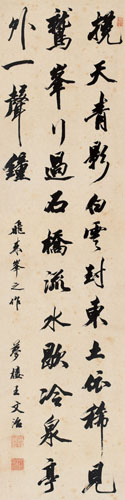 撓天青影白雲封東土依稀見
鷲峯行過石橋流水歇冷泉亭
外一聲鐘
飛來峯之作
夢樓王文治